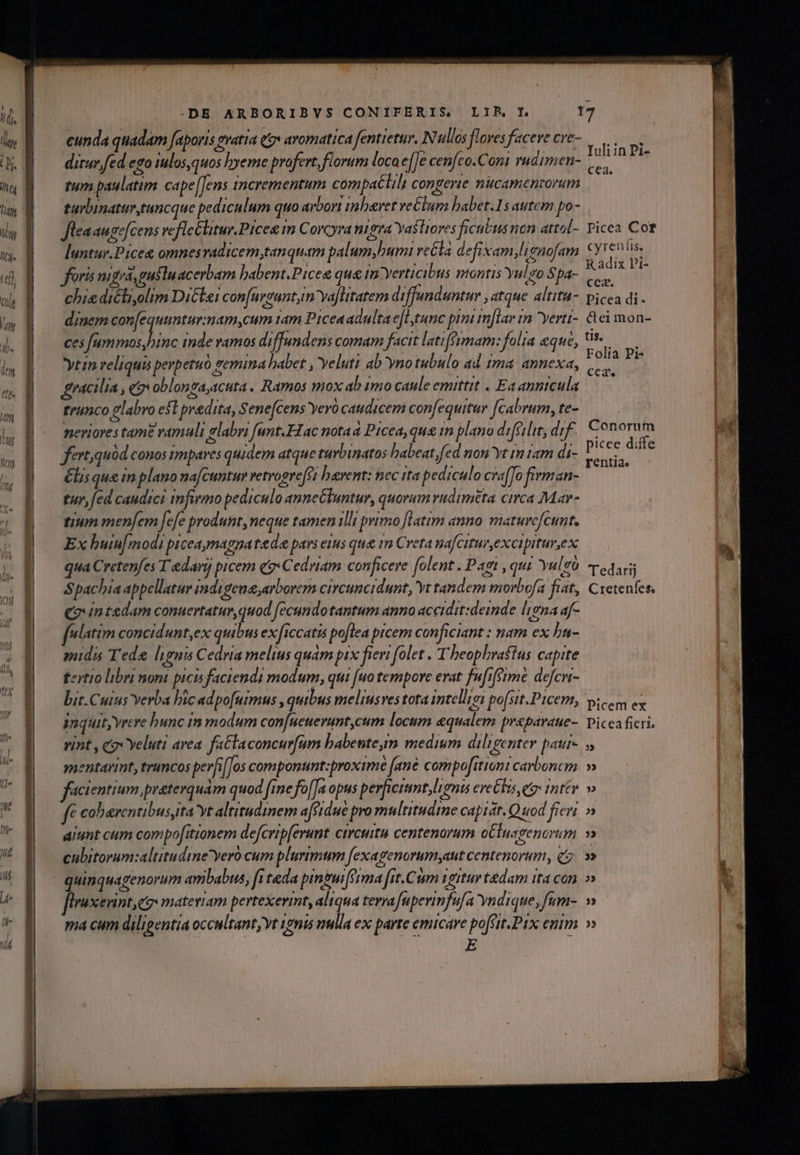 DE ARBORIBVS CONIFERIS. LIB. I. 17
cunda quadam ſaporis gratia &amp; aromatica ſentietur. Nullos flores facere cre-
ditur, ſed ego iulos, quos hyeme profert, florum loca eſſe cenſeo. Coni rudimen-
Iuli in Pi-
ceá.
tum paulatim capeſſens incrementum compactili congerie nucamentorum
turbinatur, tuncque pediculum quo arbori inhæret rectum habet. Is autem po-
ſtea augeſcens reflectitur. Piceæ in Corcyra nigra vaſtiores ficubus non attol-
Picea Cor
cyrenſis.
luntur. Piceæ omnes radicem, tanquam palum, humi recta defixam, lignoſam
Radix Pi-
ceæ.
foris nigrá, guſtu acerbam habent. Piceæ quæ in verticibus montis vulgo Spa-
chiæ dicti, olim Dictæi conſurgunt, in vaſtitatem diffunduntur, atque altitu-
Picea di-
ctei mon-
tis.
dinem conſequuntur: nam, cum iam Picea adulta eſt, tunc pini inſtar in verti-
ces ſummos, hinc inde ramos diffundens comam facit latiſsimam: folia æquè,
vt in reliquis perpetuò gemina habet, veluti ab vno tubulo ad ima annexa,
Folia Pi-
ceæ.
gracilia, &amp; oblonga, acuta. Ramos mox ab imo caule emittit. Ea annicula
trunco glabro eſt prædita, Seneſcens verò caudicem conſequitur ſcabrum, te-
neriores tamē ramuli glabri ſunt. Hac nota à Picea, quæ in plano diſsilit, dif-
Conorum
picee diffe
rentia.
fert, quòd conos impares quidem atque turbinatos habeat, ſed non vt in iam di-
ctis quæ in plano naſcuntur retrogreſsi hærent: nec ita pediculo craſſo firman-
tur, ſed caudici infirmo pediculo annectuntur, quorum rudimēta circa Mar-
tium menſem ſeſe produnt, neque tamen illi primo ſtatim anno matureſcunt.
Ex huiuſmodi picea, magna tædæ pars eius quæ in Creta naſcitur, excipitur, ex
qua Cretenſes Tædarij picem &amp; Cedriam conficere ſolent. Pagi, qui vulgò
Tedarij
Cretenſes.
Spachia appellatur indigenæ, arborem circuncidunt, vt tandem morboſa fiat,
&amp; in tædam conuertatur, quod ſecundo tantum anno accidit: deinde ligna aſ-
ſulatim concidunt, ex quibus exſiccatis poſtea picem conficiant: nam ex hu-
midis Tedæ lignis Cedria melius quàm pix fieri ſolet. Theophraſtus capite
tertio libri noni picis faciendi modum, qui ſuo tempore erat fuſiſsimè deſcri-
bit. Cuius verba hìc adpoſuimus, quibus melius res tota intelligi poſsit. Picem,
Picem ex
Picea fieri.
inquit, vrere hunc in modum conſueuerunt, cum locum æqualem præparaue-
rint, &amp; veluti area facta concurſum habente, in medium diligenter paui- ,,
mentarint, truncos perfiſſos componunt: proximè ſanè compoſitioni carbonem ,,
facientium, præterquàm quod ſine foſſa opus perficiunt, lignis erectis, &amp; inter ,,
ſe cohærentibus, ita vt altitudinem aſsiduè pro multitudine capiāt. Quod fieri ,,
aiunt cum compoſitionem deſcripſerunt circuitu centenorum octuagenorum ,,
cubitorum: altitudine verò cum plurimum ſexagenorum, aut centenorum, &amp; ,,
quinquagenorum ambabus, ſi tæda pinguiſsima ſit. Cum igitur tædam ita con ,,
ſtruxerint, &amp; materiam pertexerint, aliqua terra ſuperinfuſa vndique, ſum- ,,
ma cum diligentia occultant, vt ignis nulla ex parte emicare poſsit. Pix enim ,,
E